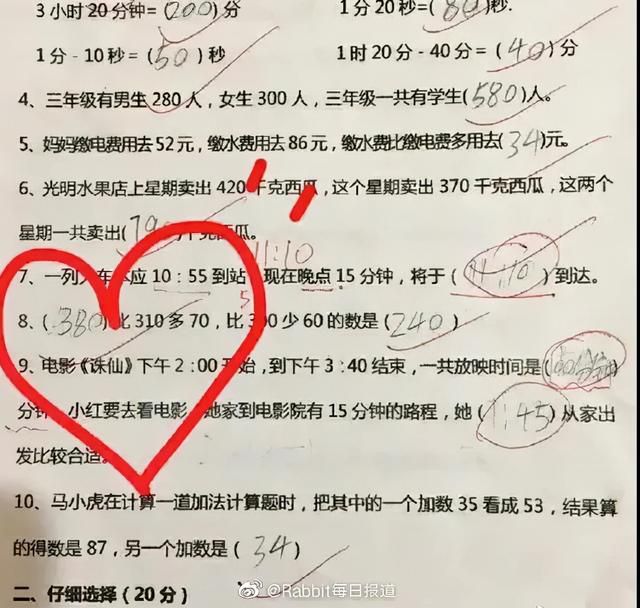 3 小时 20 分钟 = (200) 分 1 分 20 秒 = (80) 秒.
1 分 - 10 秒 = (50) 秒 1 时 20 分 - 40 分 = (40) 分
4、三年级有男生 280 人，女生 300 人，三年级一共有学生(580)人。
5、妈妈缴电费用去 52 元，缴水费用去 86 元，缴水费比缴电费多用去(34)元。
6、光明水果店上星期卖出 420 千克西瓜，这个星期卖出 370 千克西瓜，这两个
星期一共卖出(790)千克西瓜。
11:10
7、一列火车本应 10：55 到站，现在晚点 15 分钟，将于（11:10）到达。
5
8、(380)比 310 多 70，比 300 少 60 的数是（240）
9、电影《诛仙》下午 2：00 开始，到下午 3：40 结束，一共放映时间是(
分钟，小红要去看电影，她家到电影院有 15 分钟的路程，她（1:45）从家出
发比较合适。
10、马小虎在计算一道加法计算题时，把其中的一个加数 35 看成 53，结果算
的得数是 87，另一个加数是（34）
二、仔细选择（20 分）
@Rabbit每日报道